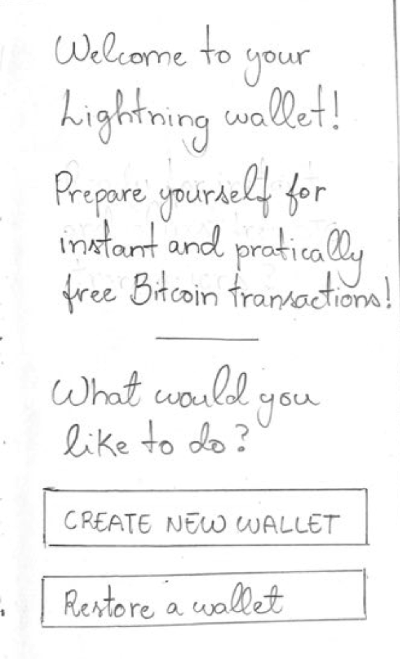 Welcome to your
Lightning wallet!
Prepare yourself for
instant and pratically
free Bitcoin transactions!
What would you
like to do?
CREATE NEW WALLET
Restore a wallet